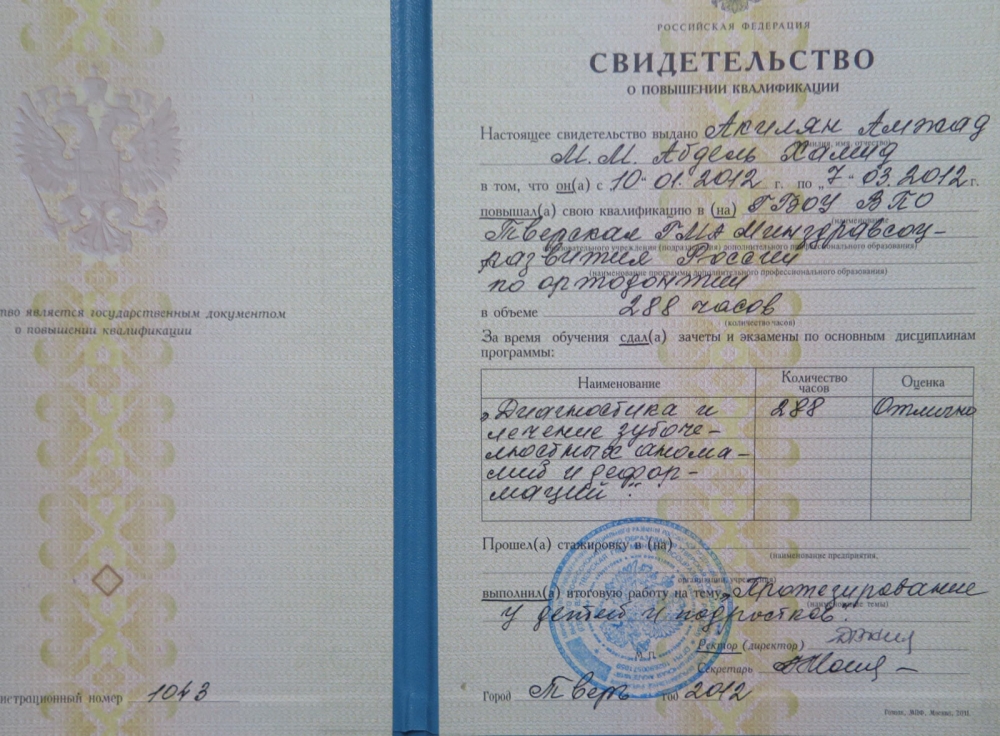 тво является государственным документом
о повышении квалификации
истрационный номер 1043
РОССИЙСКАЯ ФЕДЕРАЦИЯ
СВИДЕТЕЛЬСТВО
О ПОВЫШЕНИИ КВАЛИФИКАЦИИ
Настоящее свидетельство выдано Акилян Амжад
М.М. Абдель Хамид
в том, что он(а) с 10" 01. 2012 г. по „7" 03. 2012 г.
повышал(а) свою квалификацию в (на) ГБОУ ВПО
(наименование
Тверская ГМА Минздравсоц-
образовательного учреждения (подразделения) дополнительного профессионального образования)
развития России
(наименование программы дополнительного профессионального образования)
по ортодонтии
в объеме 288 часов
(количество часов)
За время обучения сдал(а) зачеты и экзамены по основным дисциплинам
программы:
Наименование Количество часов Оценка
„Диагностика и 288 Отлично
лечение зубоче-
люстных анома-
лий и дефор-
маций".
Прошел(а) стажировку в (на)
(наименование предприятия,
организации, учреждения)
выполнил(а) итоговую работу на тему „Протезирование
(наименование темы)
у детей и подростков".
Ректор (директор)
М.П.
Секретарь
Город Тверь год 2012